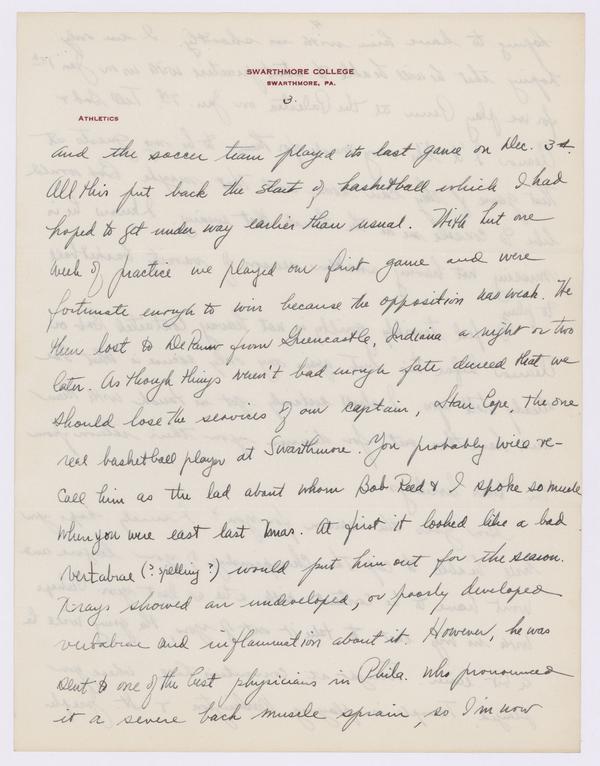 SWARTHMORE COLLEGE
SWARTHMORE, PA.
3.
ATHLETICS
and the soccer team played its last game on Dec. 3rd.
All this put back the start of basketball which I had
hoped to get under way earlier than usual. With but one
week of practice we played our first game and were
fortunate enough to win because the opposition was weak. We
then lost to DePauw from Greencastle, Indiana a night or two
later. As though things weren't bad enough fate decreed that we
should lose the services of our captain, Stan Cope, the one
real basketball player at Swarthmore. You probably will re-
call him as the lad about whom Bob Reed & I spoke so much
when you were east last Xmas. At first it looked like a bad
vertabrae (? spelling?) would put him out for the season.
Xrays showed an undeveloped, or poorly developed
vertabrae and inflammation about it. However, he was
sent to one of the best physicians in Phila. who pronounced
it a severe back muscle sprain, so I'm now